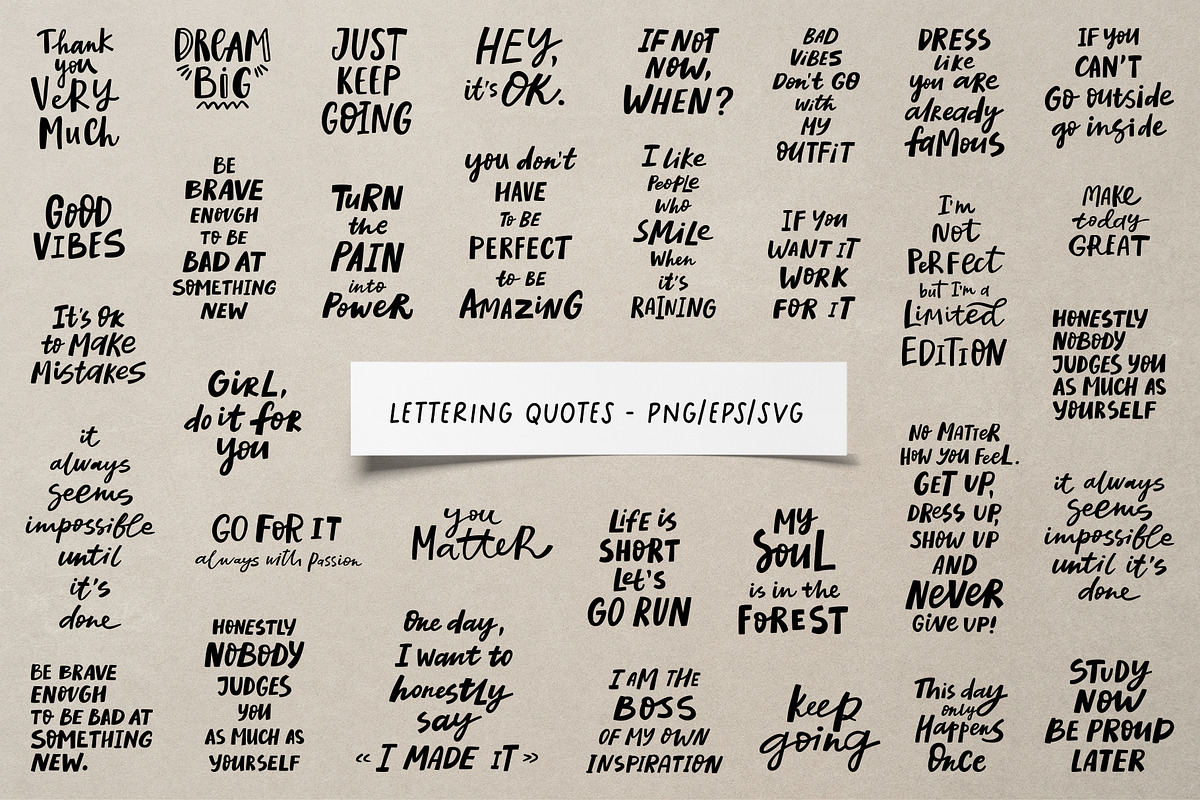 Thank
you
VeRy
Much
DREAM
"BiG"
JUST
KEEP
GOING
HEY,
it's OK.
IF NOT
NOW,
WHEN?
BAD
ViBES
Don't GO
with
MY
OUTFiT
DRESS
like
you aRe
already
faMous
IF you
CAN'T
Go outside
go inside
GOOD
VIBES
BE
BRAVE
ENOUGH
TO BE
BAD AT
SOMETHING
NEW
TuRN
the
PAIN
into
PoweR
you don't
HAVE
To BE
PERFECT
to BE
AMAZiNG
I like
PeoPLe
who
SMiLe
When
it's
RAINING
IF You
WANT IT
WORK
FOR IT
I'm
Not
PeRFect
but I'm a
Limited
EDITION
MAKe
today
GREAT
It's OK
to MaKe
MistaKes
HONESTLY
NOBODY
JUDGES YOU
AS MUCH AS
YOURSELF
GiRL,
do it for
you
LETTERING QUOTES - PNG/EPS/SVG
it
always
seems
impossible
until
it's
done
GO FOR IT
always with Passion
you
MatteR
LiFe is
SHORT
Let's
GO RUN
My
SouL
is in the
FoREST
No MATTeR
HOW YOU FeeL.
GET UP,
DRess UP,
SHOW UP
AND
NeVeR
GiVe UP!
it always
seems
impossible
until it's
done
BE BRAVE
ENOUGH
TO BE BAD AT
SOMETHING
NEW.
HONESTLY
NOBODY
JUDGES
YOU
AS MUCH AS
YOURSELF
One day,
I want to
honestLy
say
«I MADE IT»
I AM THE
BOSS
OF MY OWN
INSPIRATION
keep
going
This day
only
Happens
OnCe
STuDy
NOW
BE PROUD
LATER